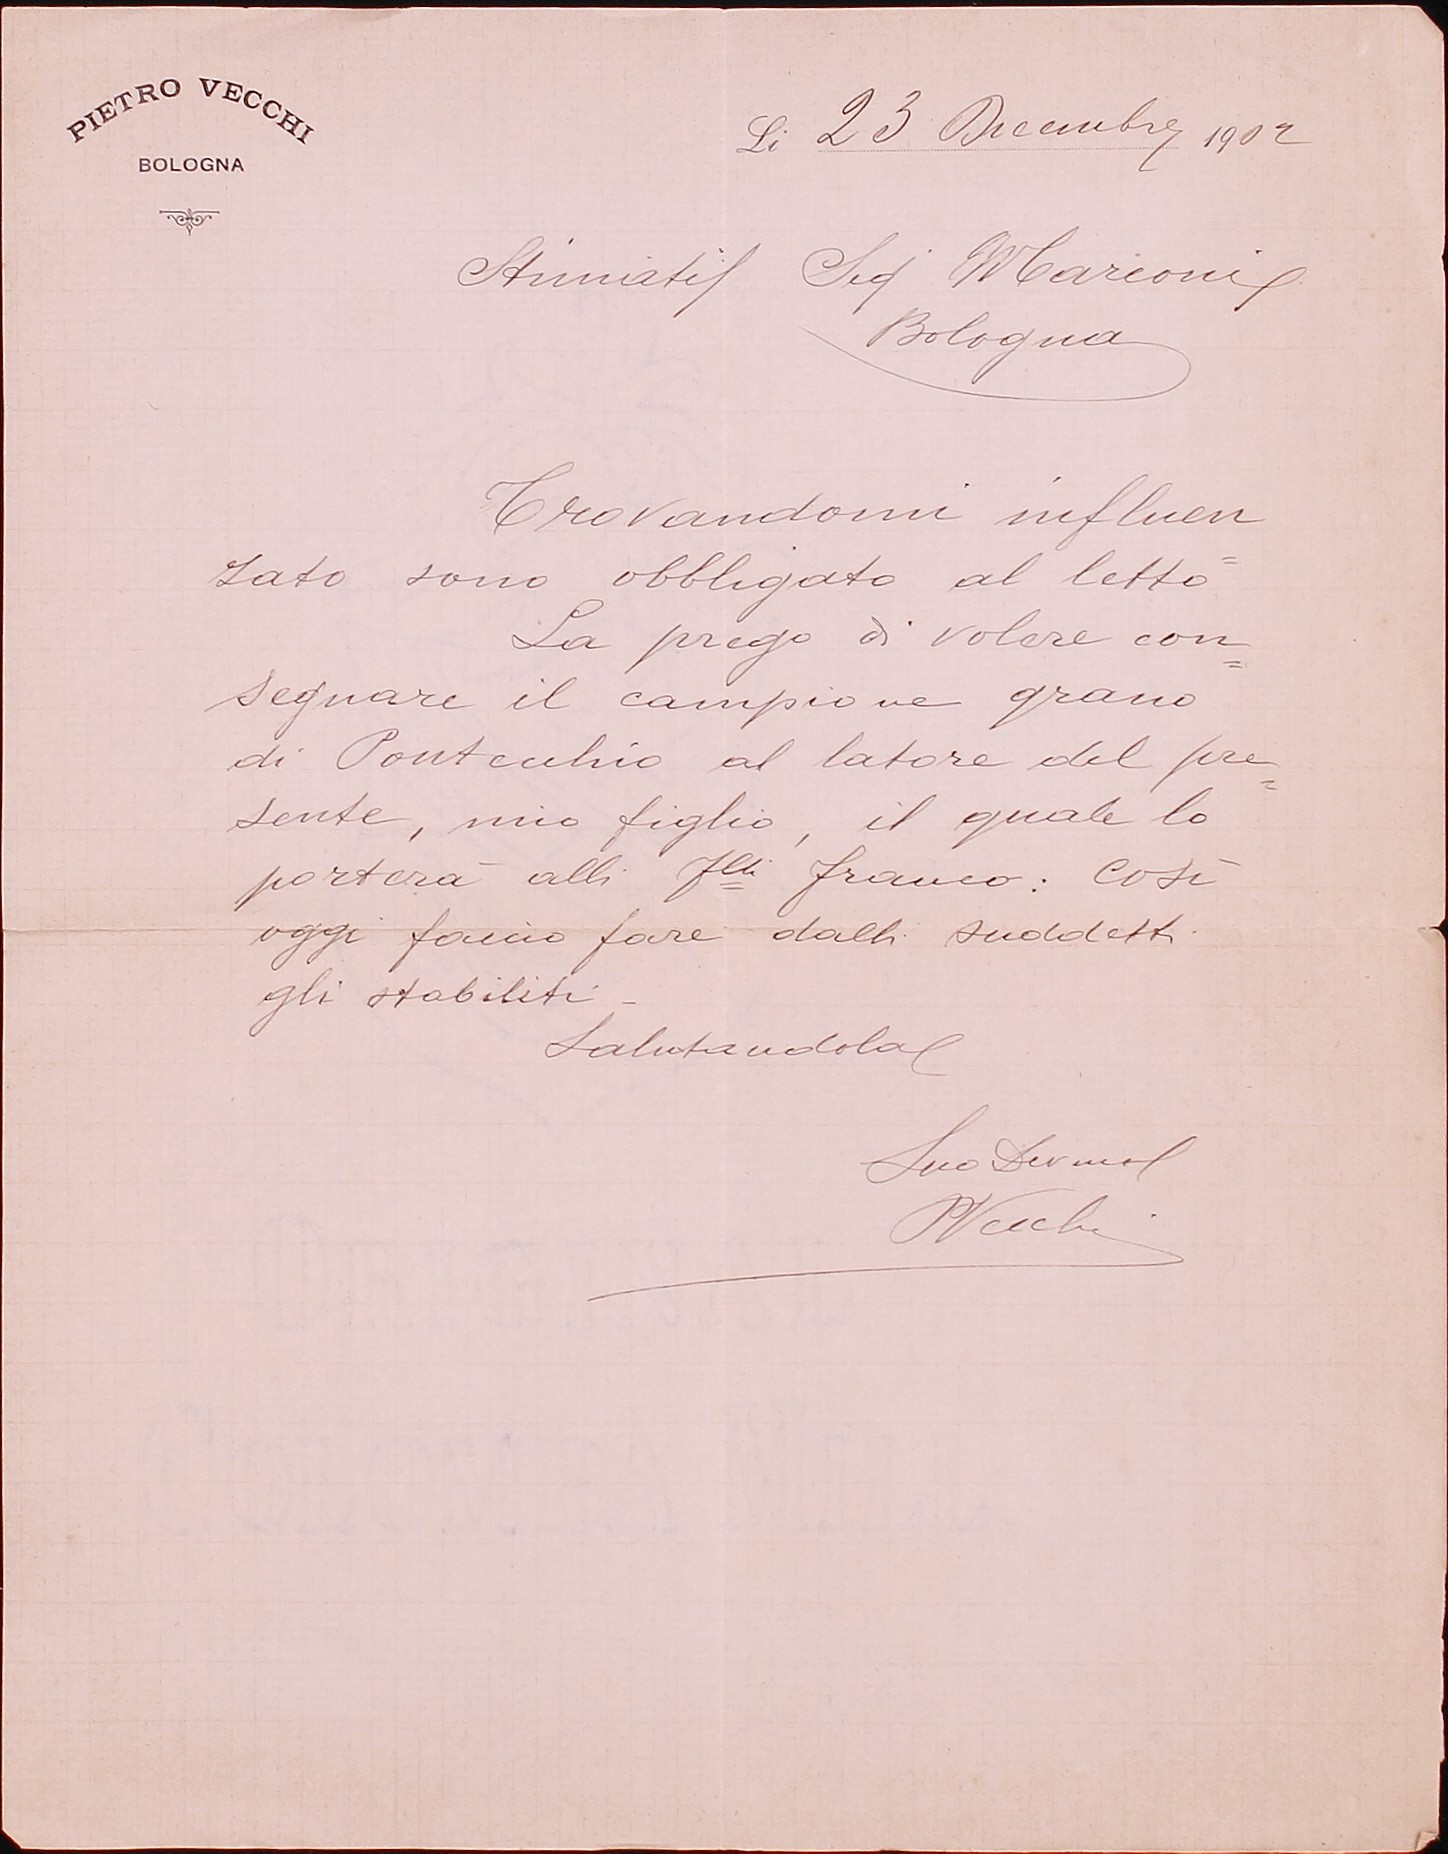 PIETRO VECCHI
BOLOGNA
Li 23 Decembre 1902
Stimatis Sig Marconi
Bologna
Trovandomi influen
zato sono obbligato al letto
La prego di volere con=
segnare il campione grano
di Pontecchio al latore del pre=
sente, mio figlio, il quale lo
porterà alli Flli Franco: così
oggi faccio fare dalli suddetti
gli stabiliti -
Salutandola
Suo Devmo
PVecchi